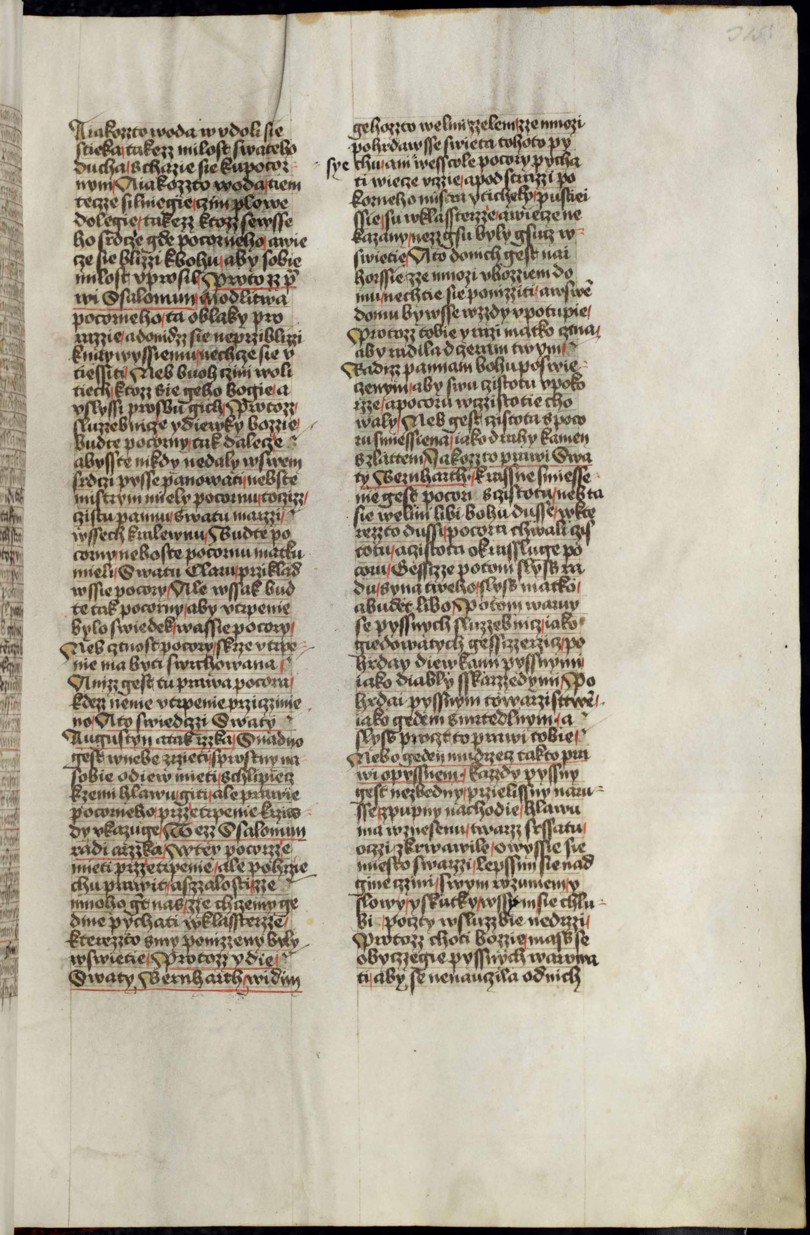 A iakozzto woda w vdoli sie
stieka takezz milost swateho
ducha schazie sie kupocor
nym Aiakozzto woda tiem
teczze silniegie czim plowe
dolegie takezz ktozz sewsse
ho srdcze gde pocorneho awie
cze sie blizzi kbohu aby sobie
milost vprosil Protozz p̄
wi Ssalomun Modlitwa
pocorneho ta oblaky pro
razzie adonidzz sie nepriblizzi
knaywyssiemu nechcze sie v
tiessiti Neb buoh czini woli
tiech ktozz sie geho bogie a
vslyssi prosbu gich Protozz
sluzzebnicze ydiewky bozzie
budte pocorny tak dalecze
abysste nikdy nedaly wswem
srdczi pysse panowati nebste
mistrym miely pocornu toczizz
czistu pannu swatu marzi
wssech kralewnu Budte po
corny neboste pocornu matku
mieli Swatu Claru priklad
wssie pocory Ale wssak bud
te tak pocorny aby vtrpenie
bylo swiedek wassie pocory
Neb cztnost pocory skrze vtrpe
nie ma byti swrchowana
Anizz gest tu prawa pocora
kdezz nenie vtrpenie prziczinie
no Ato swiedczi Swaty
Augustyn atak rzka Snadno
gest wnebe zrzieti sprostny na
sobie odiew mieti schlipiecz
kzemi hlawu giti ale prawie
pocorneho przzetrpenie kriw
dy vkazuge Tezz Ssalomun
radi arzka Wtey pocorzze
mieti przzetrpenie ale pohrzie
chu prawie aszzalosti zze
mnoho ge nas zze chczemy ge
dine pychati wklassterzze
kterezzto smy ponizzeny byly
wswietie Protozz ydie
Swaty Bernharth widim
gehozzto welmi zzelem zze mnozi
pohrdawsse swieta tohoto py
sye chu am wesscole pocory pycha
ti wiecze vczie apod strazzi po
korneho mistra vtichelp pustiei
ssie su wklassterzze awiecze ne
kazany nezz gsu byly gsucz w
swietie Ato domch gest nai
horssie zze mnozi vbozziem do
mu nechtie sie ponizziti awswe̅
domu by wsse wzzdy vpotupie
Protozz tobie yrazi matko cztna
aby radila dczeram twym
Badizz pannam bohu poswie
czenym aby swu czistotu vpoko
rzze apocoru wczistotie cho
waly Neb gest czistota spoco
ru smiessiena iako drahy kamen
szlattem Jakozzto prawi Swa
ty Bernharth krassne smiesse
nie gest pocora sczistotu neb ta
sie welmi libi bohu dusse wkte
rezzto dussi pocora chwali czis
totu aczistota okrassluge po
coru Gessizze potom slyss ra
du syna tweho slyss matko
abudet libo Potom waruy
se pyssnych sluzzebnicz iako
giedowatych gessizzerzicz po
hrday diewkami pyssnymi
iako diably sskarzzedymi Po
hrdai pyssnym towarzisstwe̅
iako gedem smrtedlnym a
slyss proczt to prawi tobie
Nebo geden mudrzecz takto pra
wi opyssnem kazzdy pyssny
gest nezbedny przielissny naru
sse zpupny nachodie hlawu
ma wznesenu twarzz srssatu
oczi zkrwawile owyssie sie
miesto swazzi lepssim sie nad
gine czini swym rozumem y
slowy yskutky wssiemsie chlu
bi poczty wsluzzbie nedrzi
Protozz choti bozzie mass se
obyczzegie pyssnych warowa
ti aby se nenauczila od nich